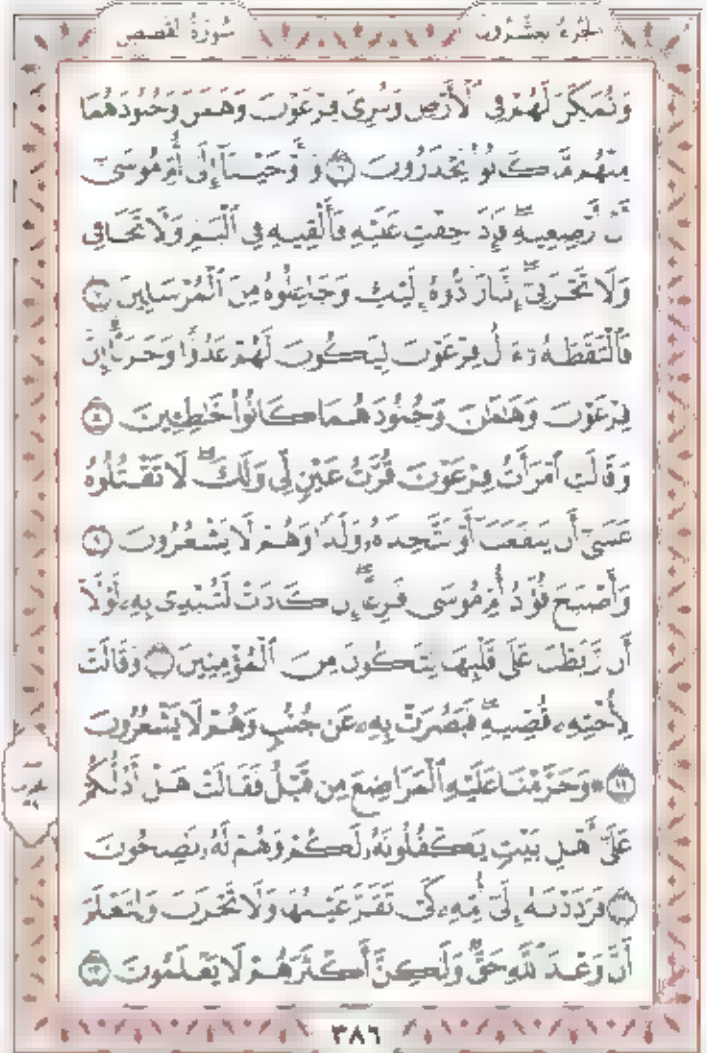 الجزء العشرون سورة القصص
وَنُمَكِّنَ لَهُمْ فِي ٱلْأَرْضِ وَنُرِيَ فِرْعَوْنَ وَهَٰمَٰنَ وَجُنُودَهُمَا
مِنْهُم مَّا كَانُوا۟ يَحْذَرُونَ ٦ وَأَوْحَيْنَآ إِلَىٰٓ أُمِّ مُوسَىٰٓ
أَنْ أَرْضِعِيهِ ۖ فَإِذَا خِفْتِ عَلَيْهِ فَأَلْقِيهِ فِي ٱلْيَمِّ وَلَا تَخَافِي
وَلَا تَحْزَنِيٓ ۖ إِنَّا رَآدُّوهُ إِلَيْكِ وَجَاعِلُوهُ مِنَ ٱلْمُرْسَلِينَ ٧
فَٱلْتَقَطَهُۥٓ ءَالُ فِرْعَوْنَ لِيَكُونَ لَهُمْ عَدُوًّا وَحَزَنًا ۗ إِنَّ
فِرْعَوْنَ وَهَٰمَٰنَ وَجُنُودَهُمَا كَانُوا۟ خَٰطِـِٔينَ ٨
وَقَالَتِ ٱمْرَأَتُ فِرْعَوْنَ قُرَّتُ عَيْنٍ لِّي وَلَكَ ۖ لَا تَقْتُلُوهُ
عَسَىٰٓ أَن يَنفَعَنَآ أَوْ نَتَّخِذَهُۥ وَلَدًا وَهُمْ لَا يَشْعُرُونَ ٩
وَأَصْبَحَ فُؤَادُ أُمِّ مُوسَىٰ فَٰرِغًا ۖ إِن كَادَتْ لَتُبْدِي بِهِۦ لَوْلَآ
أَن رَّبَطْنَا عَلَىٰ قَلْبِهَا لِتَكُونَ مِنَ ٱلْمُؤْمِنِينَ ١٠ وَقَالَتْ
لِأُخْتِهِۦ قُصِّيهِ ۖ فَبَصُرَتْ بِهِۦ عَن جُنُبٍ وَهُمْ لَا يَشْعُرُونَ
١١ ۞ وَحَرَّمْنَا عَلَيْهِ ٱلْمَرَاضِعَ مِن قَبْلُ فَقَالَتْ هَلْ أَدُلُّكُمْ
عَلَىٰٓ أَهْلِ بَيْتٍ يَكْفُلُونَهُۥ لَكُمْ وَهُمْ لَهُۥ نَٰصِحُونَ
١٢ فَرَدَدْنَٰهُ إِلَىٰٓ أُمِّهِۦ كَيْ تَقَرَّ عَيْنُهَا وَلَا تَحْزَنَ وَلِتَعْلَمَ
أَنَّ وَعْدَ ٱللَّهِ حَقٌّ وَلَٰكِنَّ أَكْثَرَهُمْ لَا يَعْلَمُونَ ١٣
٣٨٦